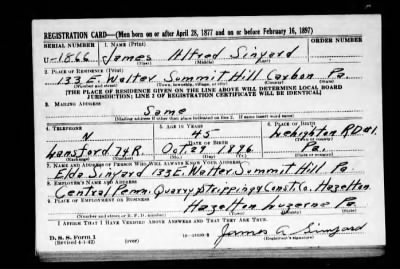 REGISTRATION CARD—(Men born on or after April 28, 1877 and on or before February 16, 1897)
SERIAL NUMBER 1. NAME (Print) ORDER NUMBER
U-1866 James Alfred Sinyard
(First) (Middle) (Last)
2. PLACE OF RESIDENCE (Print)
133 E. Walter Summit Hill Carbon Pa.
(Number and street) (Town, township, village, or city) (County) (State)
[THE PLACE OF RESIDENCE GIVEN ON THE LINE ABOVE WILL DETERMINE LOCAL BOARD
JURISDICTION; LINE 2 OF REGISTRATION CERTIFICATE WILL BE IDENTICAL]
3. MAILING ADDRESS
Same
(Mailing address if other than place indicated on line 2. If same insert word same)
4. TELEPHONE 5. AGE IN YEARS 6. PLACE OF BIRTH
N 45 Lehighton R.D#1.
DATE OF BIRTH (Town or county)
Lansford 74R. Oct. 29 1896 Pa.
(Exchange) (Number) (Mo.) (Day) (Yr.) (State or country)
7. NAME AND ADDRESS OF PERSON WHO WILL ALWAYS KNOW YOUR ADDRESS
Elda Sinyard 133 E. Walter Summit Hill Pa.
8. EMPLOYER'S NAME AND ADDRESS
Central Penn. Quarry Stripping & Const. Co. Hazelton
9. PLACE OF EMPLOYMENT OR BUSINESS
Hazelton Luzerne Pa.
(Number and street or R. F. D. number) (Town) (County) (State)
I AFFIRM THAT I HAVE VERIFIED ABOVE ANSWERS AND THAT THEY ARE TRUE.
D. S. S. Form 1
(Revised 4-1-42) (over) James A Sinyard
(Registrant's signature)